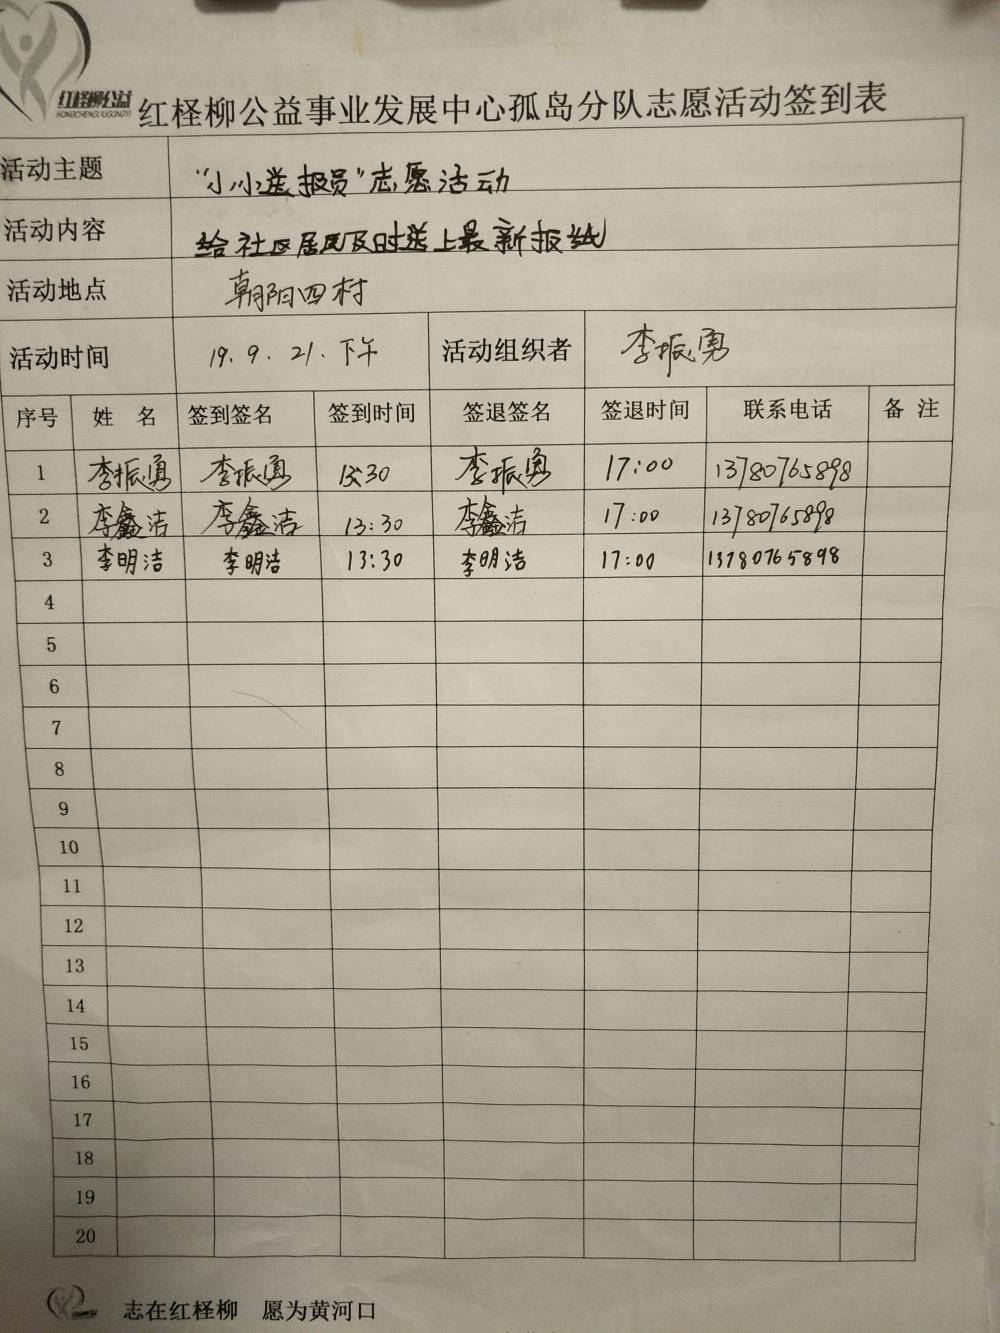 红柽柳公益
HONGCHENGLIUGONGYI
红柽柳公益事业发展中心孤岛分队志愿活动签到表
活动主题 “小小送报员”志愿活动
活动内容 给社区居民及时送上最新报纸
活动地点 朝阳四村
活动时间 19.9.21.下午 活动组织者 李振勇
序号 姓名 签到签名 签到时间 签退签名 签退时间 联系电话 备注
1 李振勇 李振勇 13:30 李振勇 17:00 13780765898
2 李鑫洁 李鑫洁 13:30 李鑫洁 17:00 13780765898
3 李明洁 李明洁 13:30 李明洁 17:00 13780765898
4
5
6
7
8
9
10
11
12
13
14
15
16
17
18
19
20
志在红柽柳 愿为黄河口